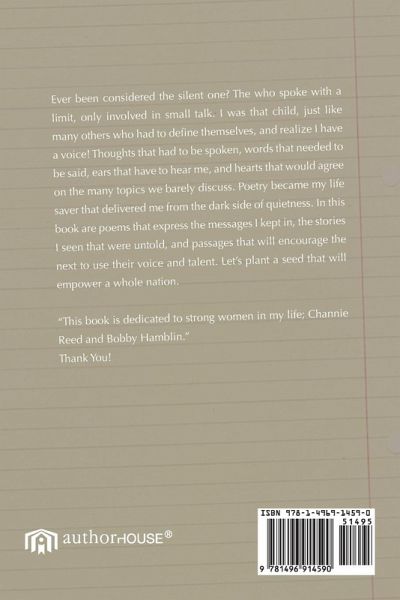 Ever been considered the silent one? The who spoke with a
limit, only involved in small talk. I was that child, just like
many others who had to define themselves, and realize I have
a voice! Thoughts that had to be spoken, words that needed to
be said, ears that have to hear me, and hearts that would agree
on the many topics we barely discuss. Poetry became my life
saver that delivered me from the dark side of quietness. In this
book are poems that express the messages I kept in, the stories
I seen that were untold, and passages that will encourage the
next to use their voice and talent. Let’s plant a seed that will
empower a whole nation.
“This book is dedicated to strong women in my life; Channie
Reed and Bobby Hamblin.”
Thank You!
authorHOUSE®
ISBN 978-1-4969-1459-0
51495
9 781496 914590